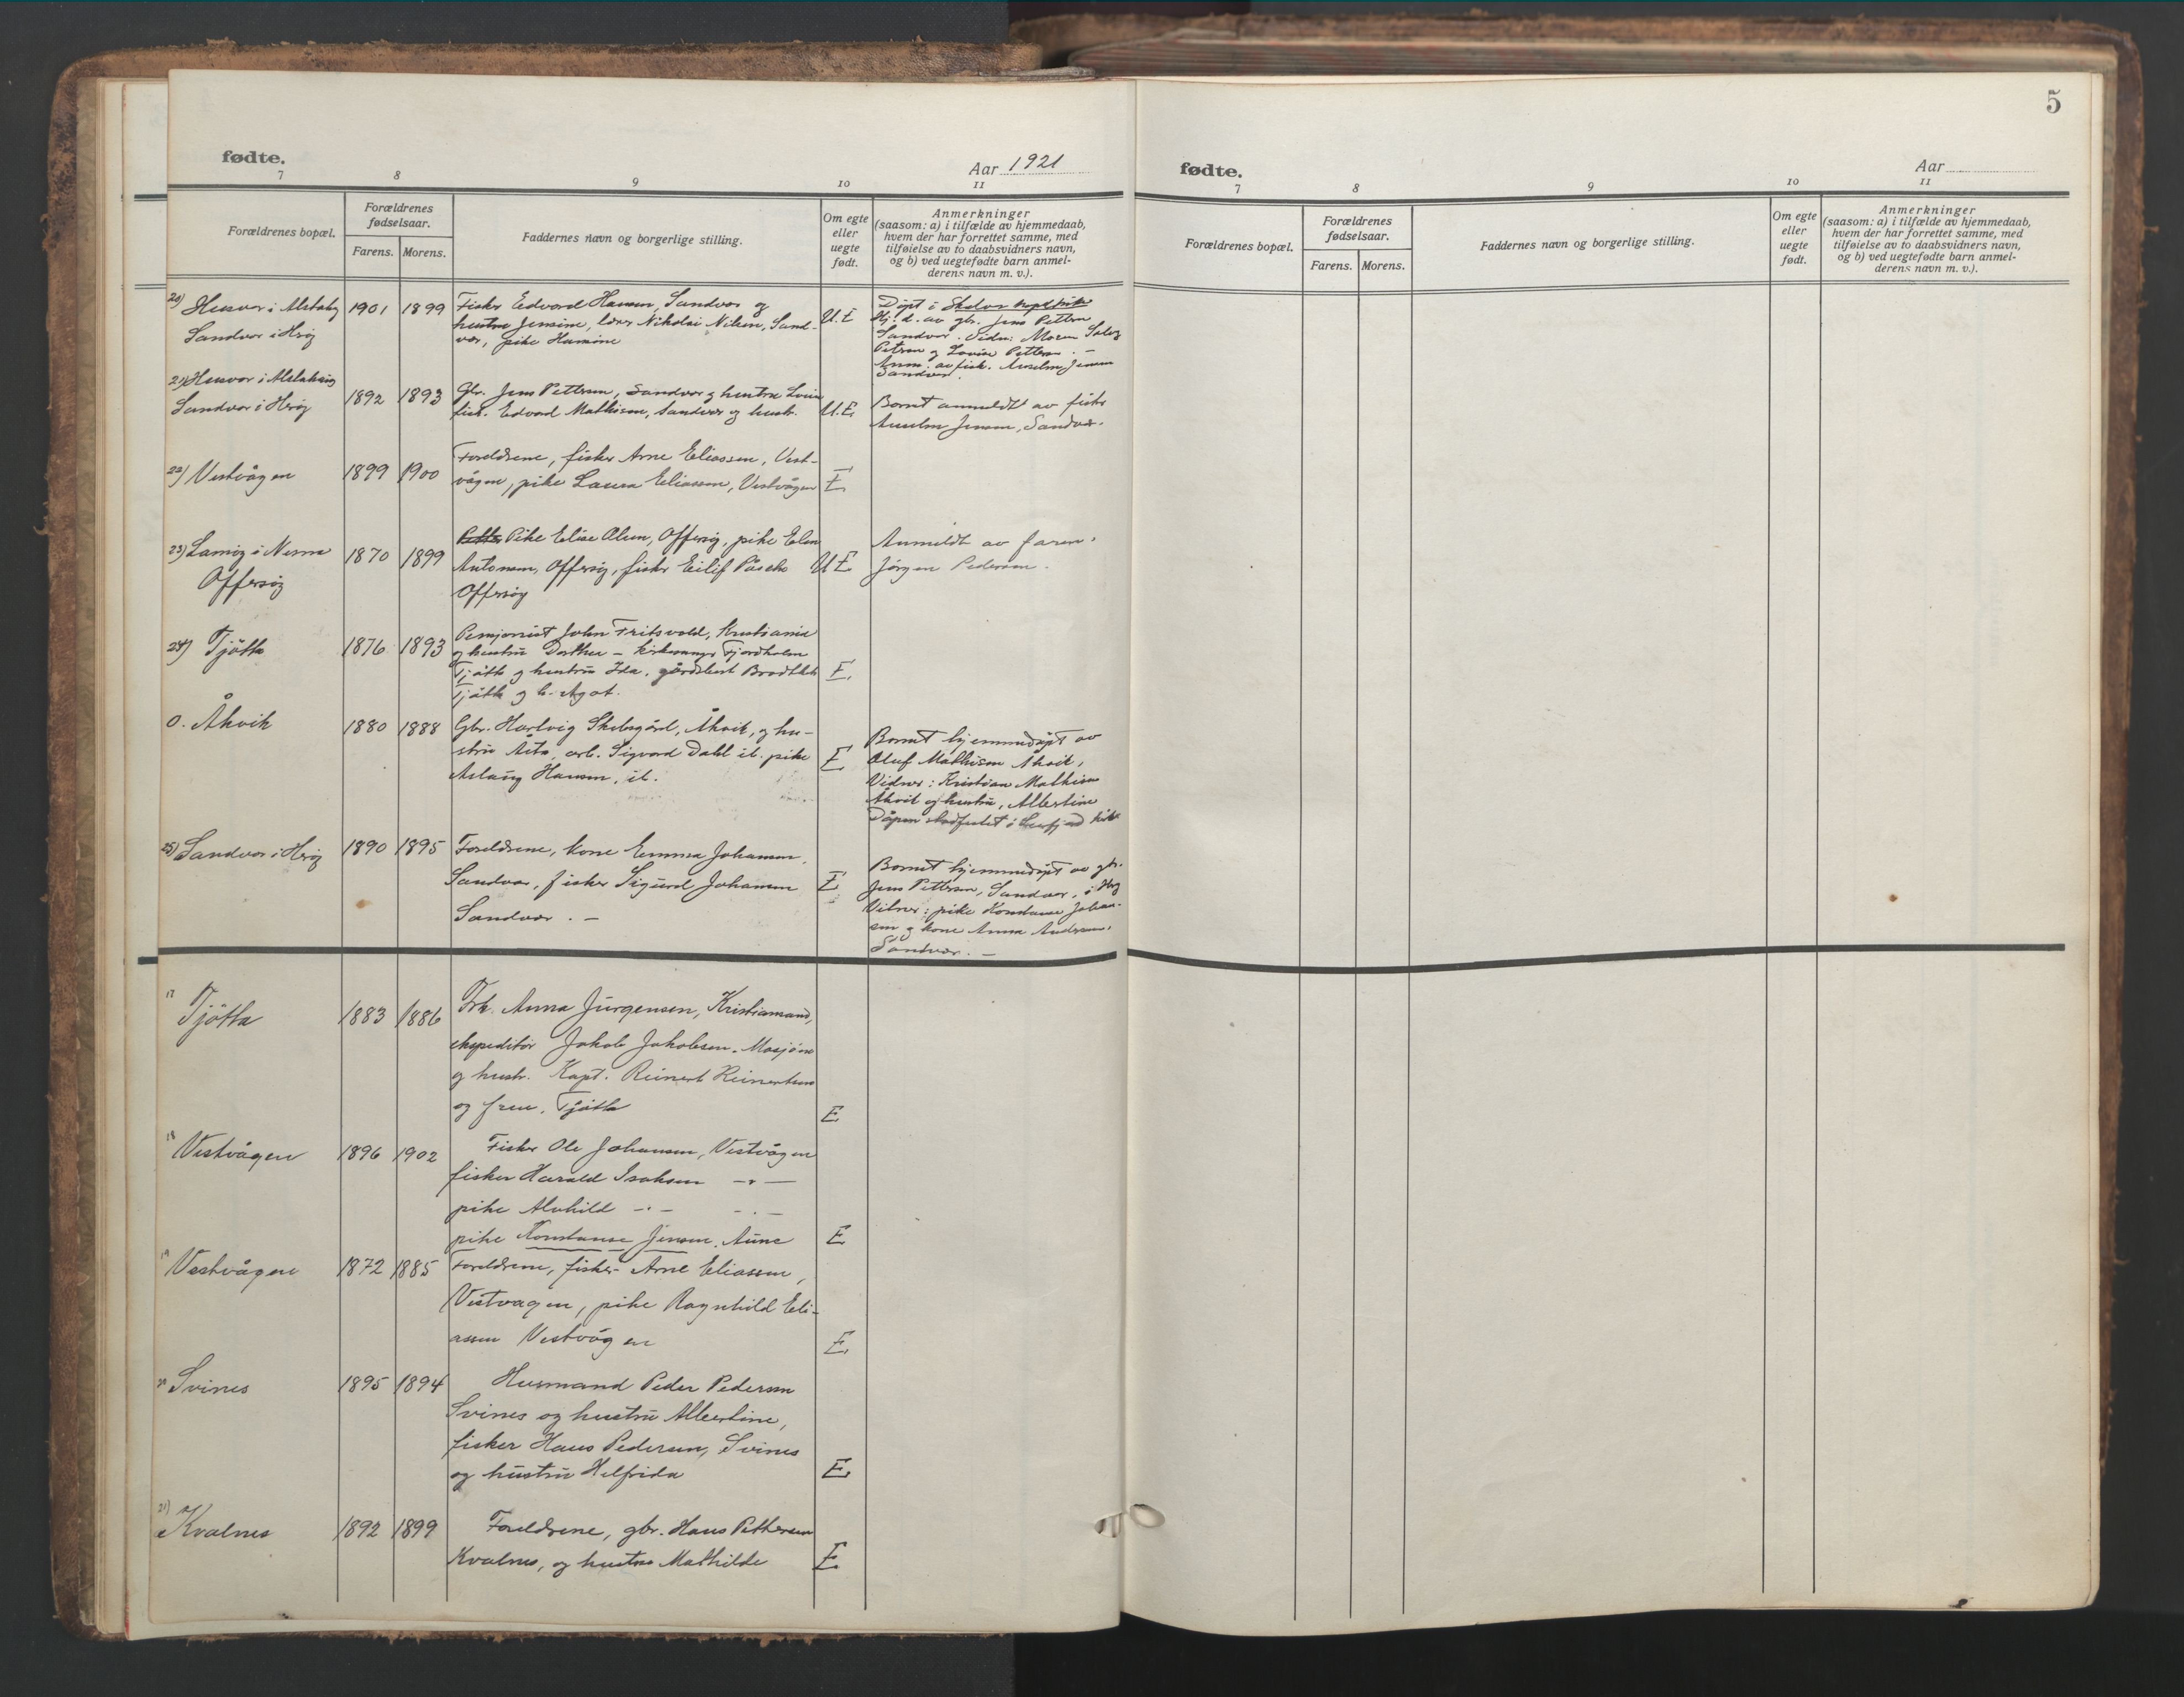 fødte.
Aar 1921
7
8
9
10
11
Forældrenes bopæl.
Forældrenes fødselsaar.
Farens.
Morens.
Faddernes navn og borgerlige stilling.
Om egte eller uegte født.
Anmerkninger
(saasom: a) i tilfælde av hjemmedaab,
hvem der har forrettet samme, med
tilføielse av to daabsvidners navn,
og b) ved uegtefødte barn anmel-
derens navn m. v.).
20) Husvær i Alstahaug
Sandvær i Herøy
1901
1899
Fisker Edvard Hansen, Sandvær og
hustru Jensine, lærer Nikolai Nilsen, Sand-
vær, pike Hansine
U.E
Døpt i
Hj. d. av gbr. Jens Pettersen
Sandvær.
Petersen og Lovise Pettersen. –
Anm. av fisk. Anselm Jensen
Sandvær.
21) Husvær i Alstahaug
Sandvær i Herøy
1892
1893
Gbr. Jens Pettersen, Sandvær og hustru Lovise
fisk. Edvard Mathisen, Sandvær og hustr.
U.E.
Barnet anmeldt av fisker
Anselm Jensen, Sandvær.
22) Vestvågen
1899
1900
Foreldrene, fisker Arne Eliassen, Vest-
vågen, pike Laura Eliassen, Vestvågen
E.
23) Lamøy i Nesna
Offersøy
1870
1899
Pike Elise Olsen, Offersøy, pike Elen
Antonsen, Offersøy, fisker Eilif
Offersøy
U.E.
Anmeldt av faren,
Jörgen Pedersen.
24) Tjötta
1876
1893
Pensjonist John Fritsvold, Kristiania
og hustru Dorthea – kirkesanger Fjordholm
Tjötta og hustru Ida, gårdsbest.
Tjötta og h. Agot.
E.
0. Åkvik
1880
1888
Gbr. Hartvig Skebsgård, Åkvik, og hu-
stru arb. Sigvard Dahl ib. pike
Aslaug Hansen, ib.
E.
Barnet hjemmedøpt av
Oluf Mathisen Åkvik,
Vidner: Kristian Mathisen
Åkvik og hustru, Albertine
Dåpen stadfestet i
25) Sandvær i Herøy
1890
1895
Foreldrene, kone Emma Johansen,
Sandvær, fisker Sigurd Johansen
Sandvær. –
E.
Barnet hjemmedøpt av gbr.
Jens Pettersen, Sandvær, i Herøy
Vitner: pike Konstanse Johan-
sen og kone Anna Andersen,
Sandvær. –
17 Tjötta
1883
1886
Frk. Anna Jürgensen, Kristiansand,
ekspeditör Jakob Jakobsen, Mosjöen
og hustr. Kapt. Reinert Reinertsen
og frue, Tjötta
E
18 Vestvågen
1896
1902
Fisker Ole Johansen, Vestvågen
fisker Harald Isaksen –"–
pike Alvhild –"– –"–
pike Konstanse Jensen, Aune
E
19 Vestvågen
1872
1885
Foreldrene, fisker Arne Eliassen,
Vestvagen, pike Ragnhild Eli-
assen Vestvågen
E.
20 Svines
1895
1894
Husmand Peder Pedersen
Svines og hustru Albertine,
fisker Hans Pedersen, Svines
og hustru Helfrida
E.
21) Kvalnes
1892
1899
Foreldrene, gbr. Hans Pettersen
Kvalnes, og hustru Mathilde
E.
5
fødte.
Aar
7
8
9
10
11
Forældrenes bopæl.
Forældrenes fødselsaar.
Farens.
Morens.
Faddernes navn og borgerlige stilling.
Om egte eller uegte født.
Anmerkninger
(saasom: a) i tilfælde av hjemmedaab,
hvem der har forrettet samme, med
tilføielse av to daabsvidners navn,
og b) ved uegtefødte barn anmel-
derens navn m. v.).